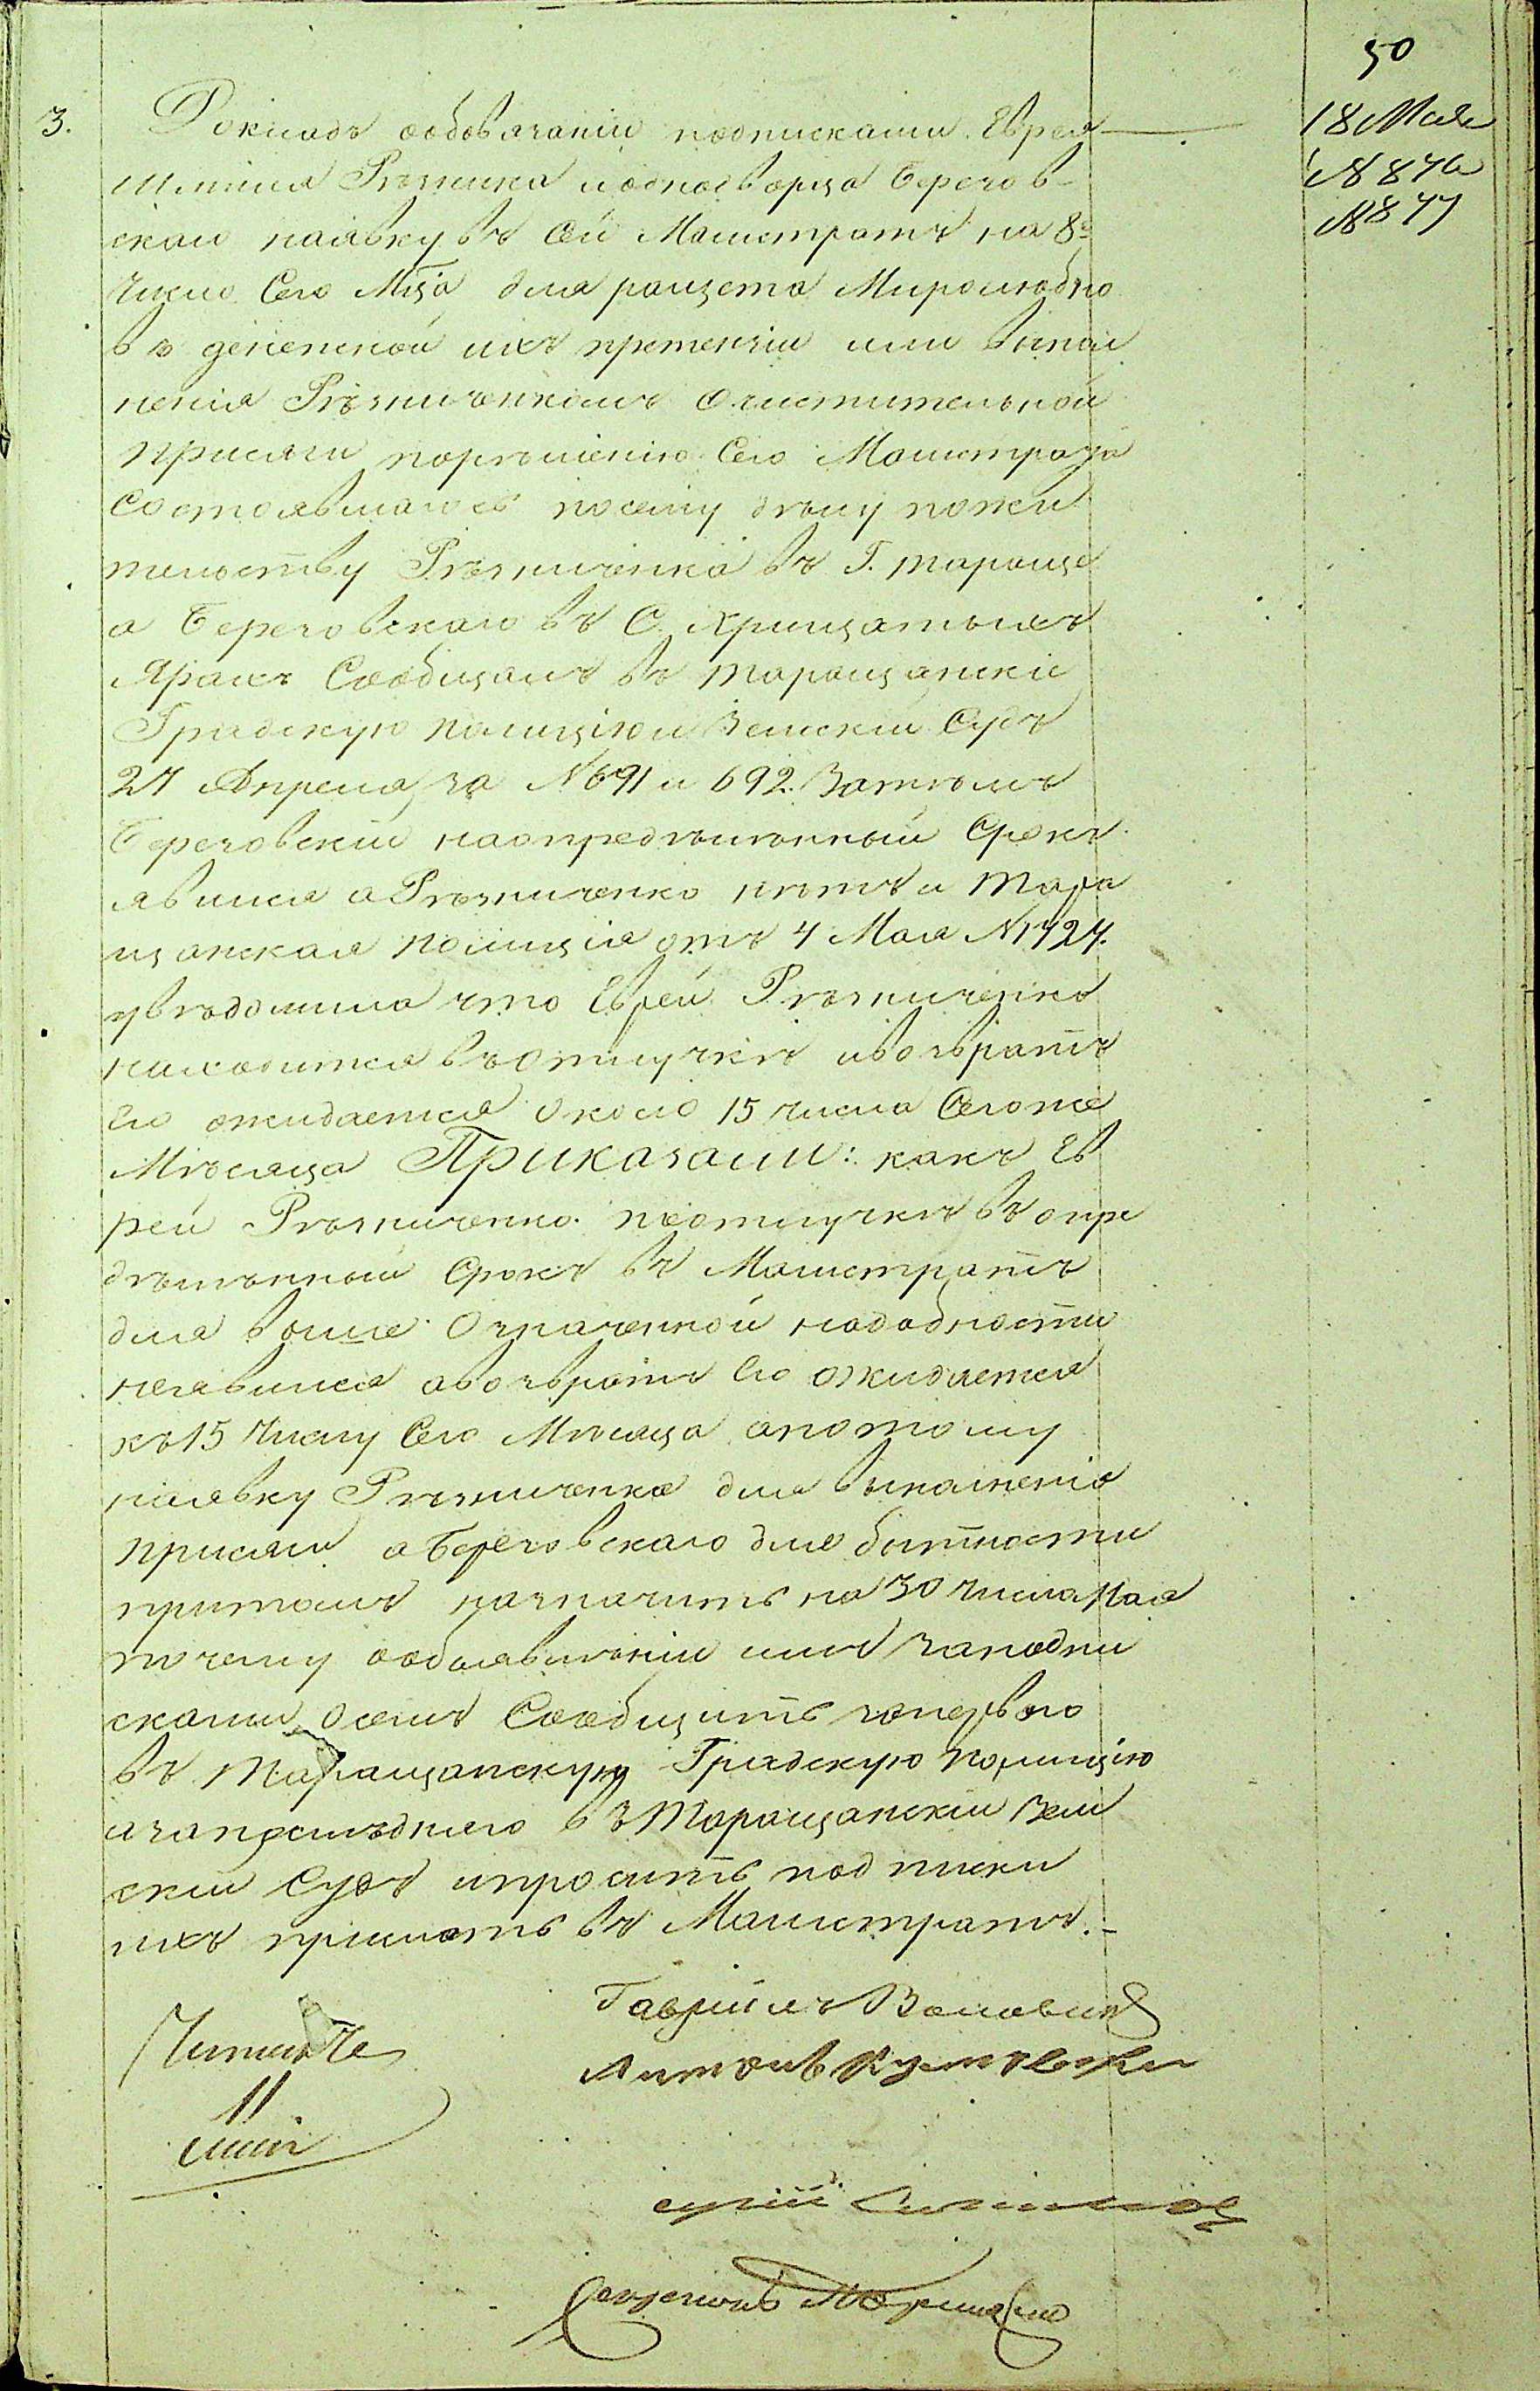 50
3. Докладъ о обовязаніи подписками Еврея
18 Мая
№ 876
№ 877
Шмиля Рѣзника и однодворца Березов-
скаго наявку въ Сей Магистратъ на 8е
число Сего Мца для разщета Миролюбно
въ денежной ихъ претензіи или выпол
ненія Рѣзниченкомъ Очистительной
присяги порѣшенію Сего Магистрата
Состоявшагося посему дѣлу пожи
тельству Рѣзниченка въ Г. Тараще
а Березовскаго въ С. Хрищатыхъ
Ярахъ Сообщалъ въ Таращанскіе
Градскую полицію и Земскій Судъ
27 Апреля за № 691 и 692. Затѣмъ
Березовскій наопредѣлѣнный Срокъ
явился а Рѣзниченко нѣтъ и Тара
щанская полиція отъ 4 Мая № 1727.
увѣдомила что Еврей Рѣзниченко
находится въ отлучкѣ ивозвратъ
Его ожидается около 15 числа Сегоже
Мѣсяца Приказали: какъ Ев
рей Рѣзниченко поотлучкѣ въ опре
дѣлѣнный Срокъ въ Магистратъ
для выше Означенной надобности
неявился авозвратъ Его ожидается
къ 15 Числу Сего Мѣсяца апотому
наявку Рѣзниченка для выполненія
присяги а Березовскаго для бытности
притомъ назначить на 30 числа Мая
почему ообъявленіи имъ заподпи
сками, Осемъ Сообщить заперваго
въ Таращанскую Градскую полицію
изапослѣдняго въ Таращанскій Зем
скій Судъ ипросить подписки
ихъ прислать въ Магистратъ.-
Гавріилъ
Антонъ
11